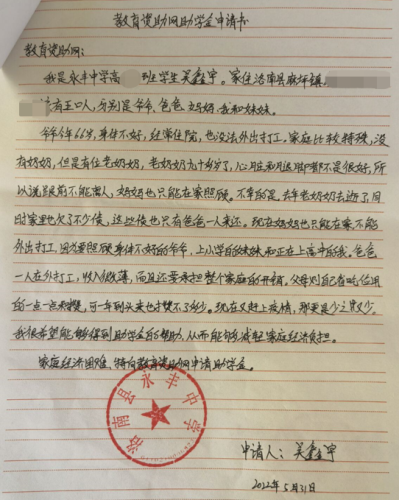 教育资助网助学金申请书
教育资助网:
我是永丰中学高 班学生吴鑫宇。家住洛南县麻坪镇
有五口人,分别是爷爷、爸爸、妈妈、我和妹妹。
爷爷今年66岁,身体不好,经常住院,也没法外出打工。家庭比较特殊,没
有奶奶,但是有位老奶奶,老奶奶九十多岁了,心脏和
都不是很好,所
以说跟前不能离人,妈妈也只能在家照顾。不幸的是,去年老奶奶去逝了,同
时家里也欠了不少债,这些债也只有爸爸一人来还。现在妈妈也只能在家不能
外出打工,因为要照顾身体不好的爷爷,上小学的妹妹和正在上高中的我。爸爸
一人在外打工,收入微薄,而且还要承担整个家庭的开销,父母对自己省吃俭用
的一点一点积攒,可一年到头来也攒不了多少。现在又赶上疫情,那更是少之又少。
我很希望能够得到助学金的帮助,从而能够减轻家庭经济负担。
家庭经济困难,特向教育资助网申请助学金。
洛南县永丰中学
申请人:吴鑫宇
2022年5月31日